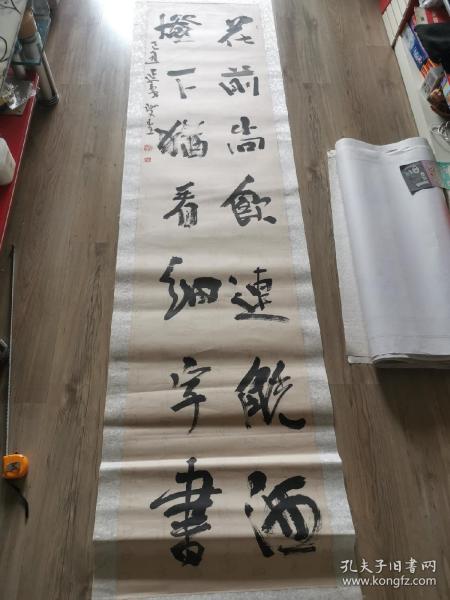 花前尚飲連觥酒
燈下猶看細字書
孔夫子旧书网
www.kongfz.com